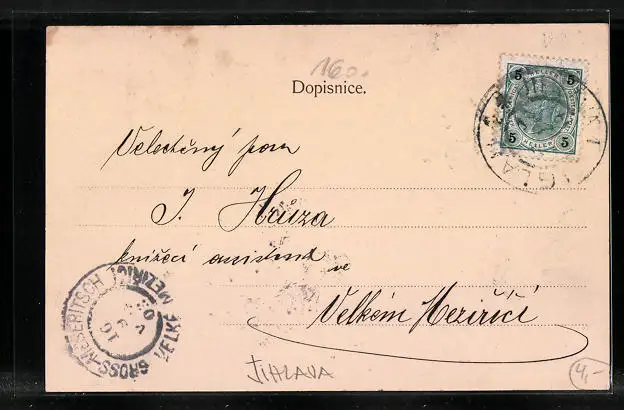 160.
Dopisnice.
5 5
5 5
HELLER
IGLAU
Velectěný pan
J. Hauza
knížecí assistent
ve
Velkém Meziříčí
GROSS-MESERITSCH
VELKÉ MEZIŘÍČÍ
16
03
JIHLAVA
4,-